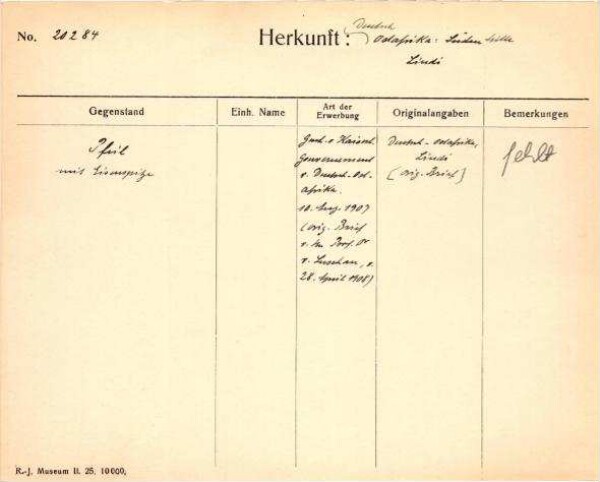 No. 20284
Herkunft: Deutsch
Ostafrika. Süden
Lindi
Gegenstand
Einh. Name
Art der
Erwerbung
Originalangaben
Bemerkungen
Pfeil
mit Eisenspitze
Gesch. v. Kaiserl.
Gouvernement
v. Deutsch-Ost-
afrika.
10. Aug. 1907
(orig. Brief
v. Hn Prof. Dr
v. Luschan, v.
28. April 1908)
Deutsch-Ostafrika,
Lindi
(orig. Brief)
fehlt
R.-J. Museum II. 25. 10000.